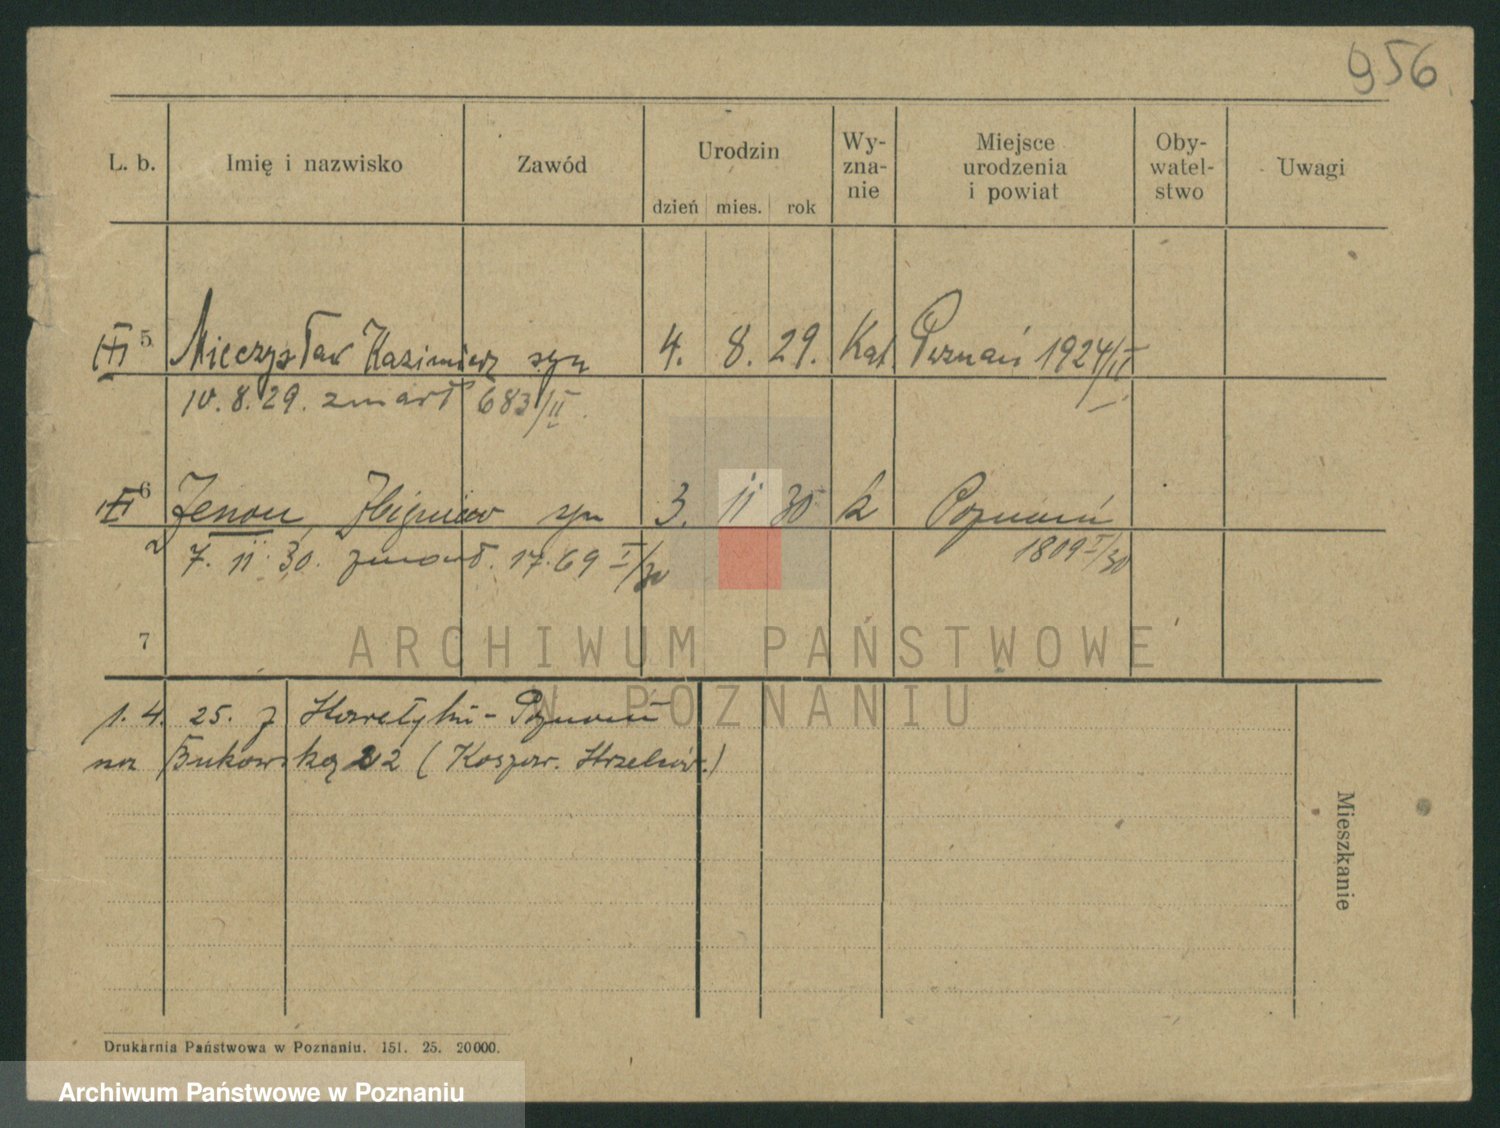 956
L. b. Imię i nazwisko Zawód Urodzin dzień mies. rok Wy-zna-nie Miejsce urodzenia i powiat Oby-watel-stwo Uwagi
5 Mieczysław Kazimierz syn 4. 8. 29. Kat. Poznań 1924/II
10. 8. 29. zmarł 683/II
6 Zenon, Zbigniew syn 3. 11 30 k Poznań
7. 11. 30. zmarł. 1769 I/30 1809 I/30
7
ARCHIWUM PAŃSTWOWE
W POZNANIU
1. 4. 25. z Poznań
na Bukowską 22 (Koszar. Strzelców.)
Mieszkanie
Drukarnia Państwowa w Poznaniu. 151. 25. 20000.
Archiwum Państwowe w Poznaniu